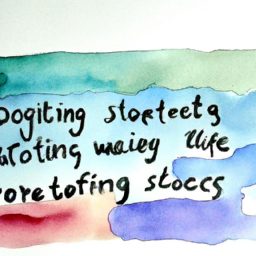 Dogiting storteetg
wroting waiey life
voretofing stoccs